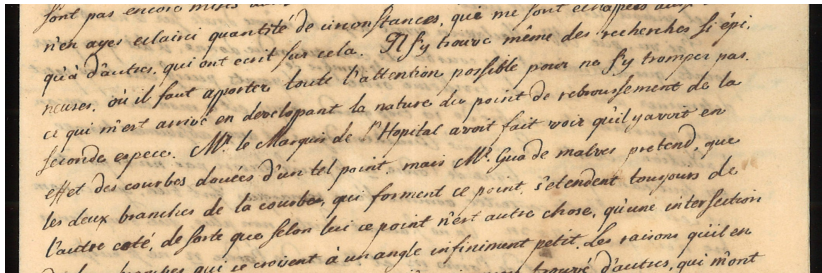 sont pas encore mises au
n'en ayes eclairci quantité de circonstances, qui me sont echappées
qu'à d'autres, qui ont ecrit sur cela. Il s'y trouve même des recherches si épi-
neuses, où il faut apporter toute l'attention possible pour ne s'y tromper pas.
ce qui m'est arrivé en developant la nature du point de rebroussement de la
seconde espece. Mr. le Marquis de l'Hopital avoit fait voir qu'il y avoit en
effet des courbes douées d'un tel point, mais Mr. Gua de malves pretend, que
les deux branches de la courbe, qui forment ce point, s'etendent toujours de
l'autre coté, de sorte que selon lui ce point n'est autre chose, qu'une intersection
branches qui se croisent à un angle infiniment petit. Les raisons qu'il en
trouvé d'autres, qui m'ont